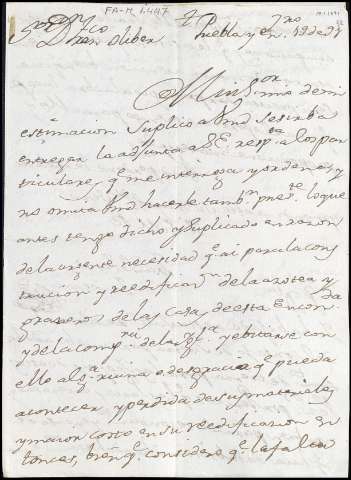 FA-M 1.447
Puebla y en.ro 19 de 97
Mui S.or mio de mi
estimacion suplico a Vmd se sirba
entregar la adjunta a S.E. resp.ta a los par
ticulares, q.e me interroga y ordena, y
no omita Vmd hacerle tamb.n pres.te lo que
antes tengo dicho y suplicado en razon
de la urgente necesidad q.e ai para la cons
trucion y reedificaz.n de la azotea y
graneros de las casas de esta Encom.da
y de la comp.ra de las y ebitarse con
ello alg.a ruina o desgracia q.e pueda
acontecer y perdida de sus materiales
y maior costo en su reedificazion en
tonces, bien q.e considero q.e la falta